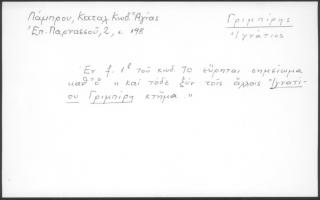 Λάμπρου, Καταλ. Κωδ. Ἁγίας
Ἐπ. Παρνασσοῦ, 2, σ. 198
Γριμπίρης
Ἰγνάτιος
Ἐν f. 1ᵝ τοῦ κωδ. 70 εὕρηται σημείωμα
καθ' ὃ " καὶ τόδε ξὺν τοῖς ἄλλοις Ἰγνατί-
ου Γριμπίρη κτῆμα "